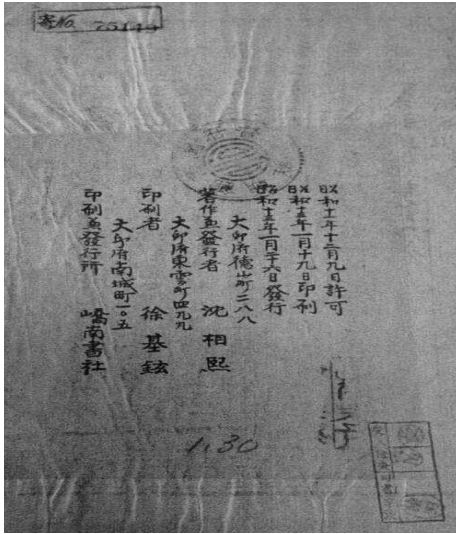 寄No. 75144
昭和十一年十二月九日許可
昭和十五年一月十九日印刷
昭和十五年一月廿六日發行
大邱府德山町二八八
著作兼發行者 沈相熙
大邱府東雲町四九九
印刷者 徐基鉉
大邱府南城町一〇五
印刷兼發行所 嶠南書社
1.30